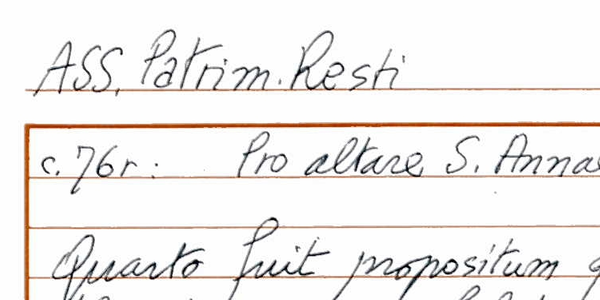 ASS, Patrim. Resti
c. 76r: Pro altare S. Annae
Quarto fuit propositum